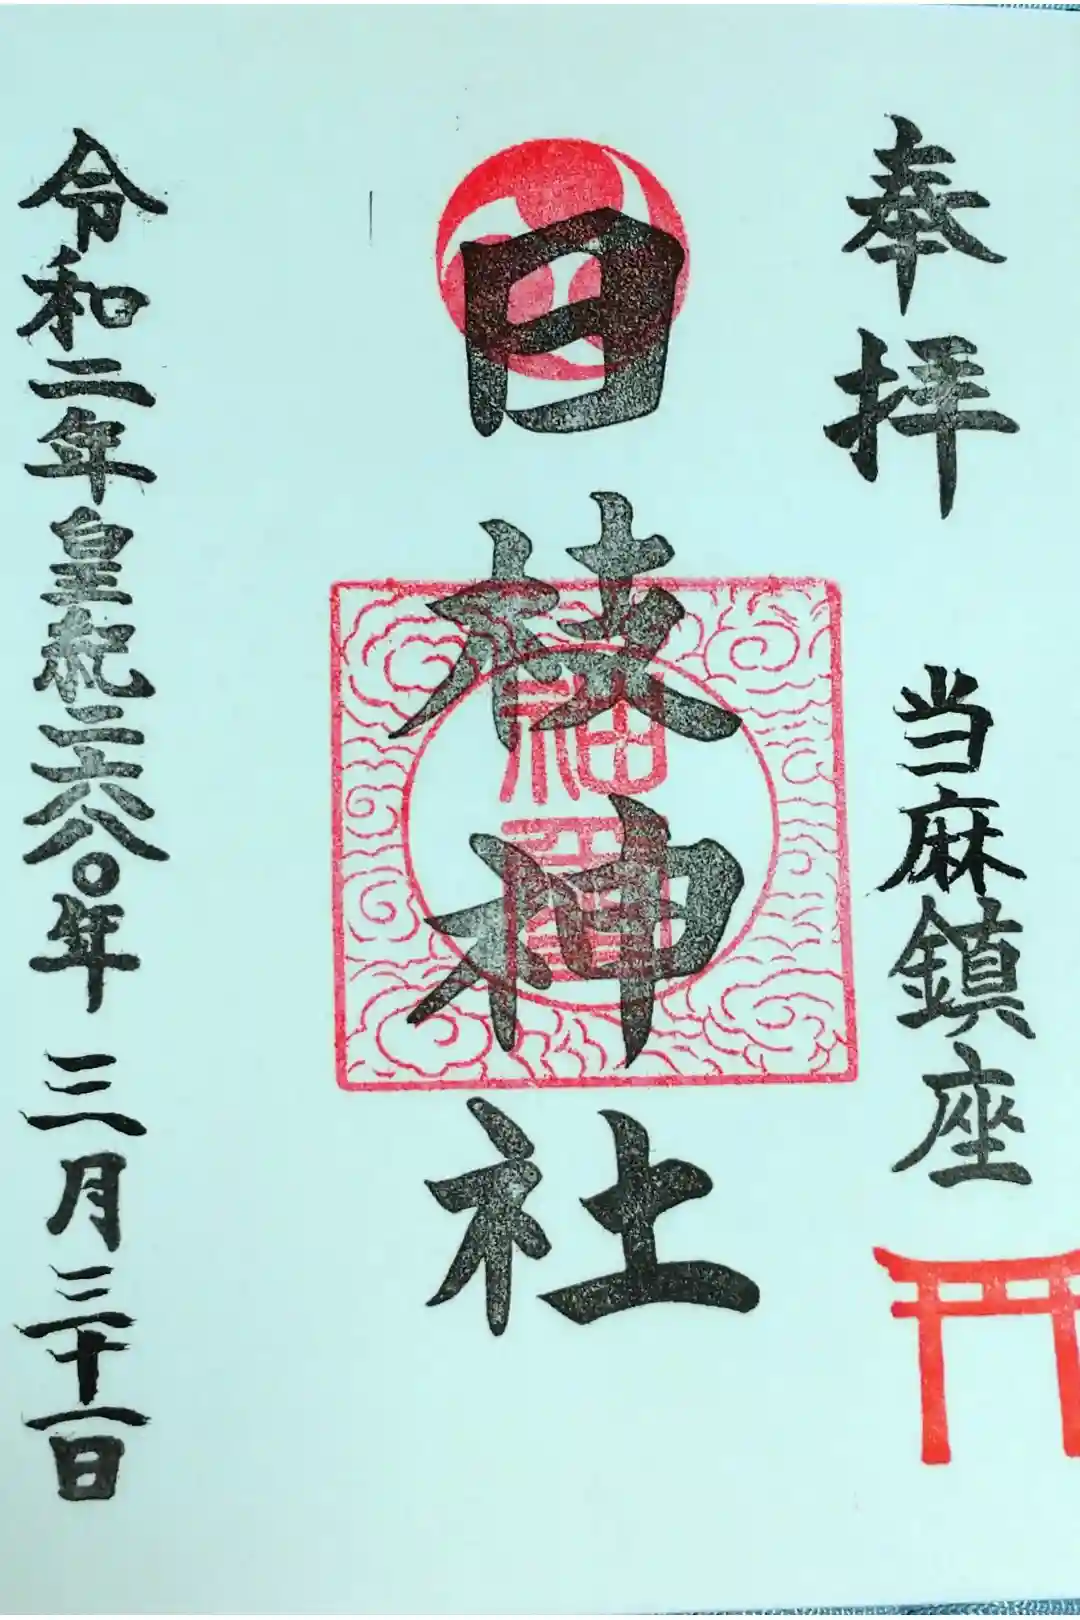 奉拝　当麻鎮座
日枝神社
令和二年皇紀二六八〇年　三月三十一日